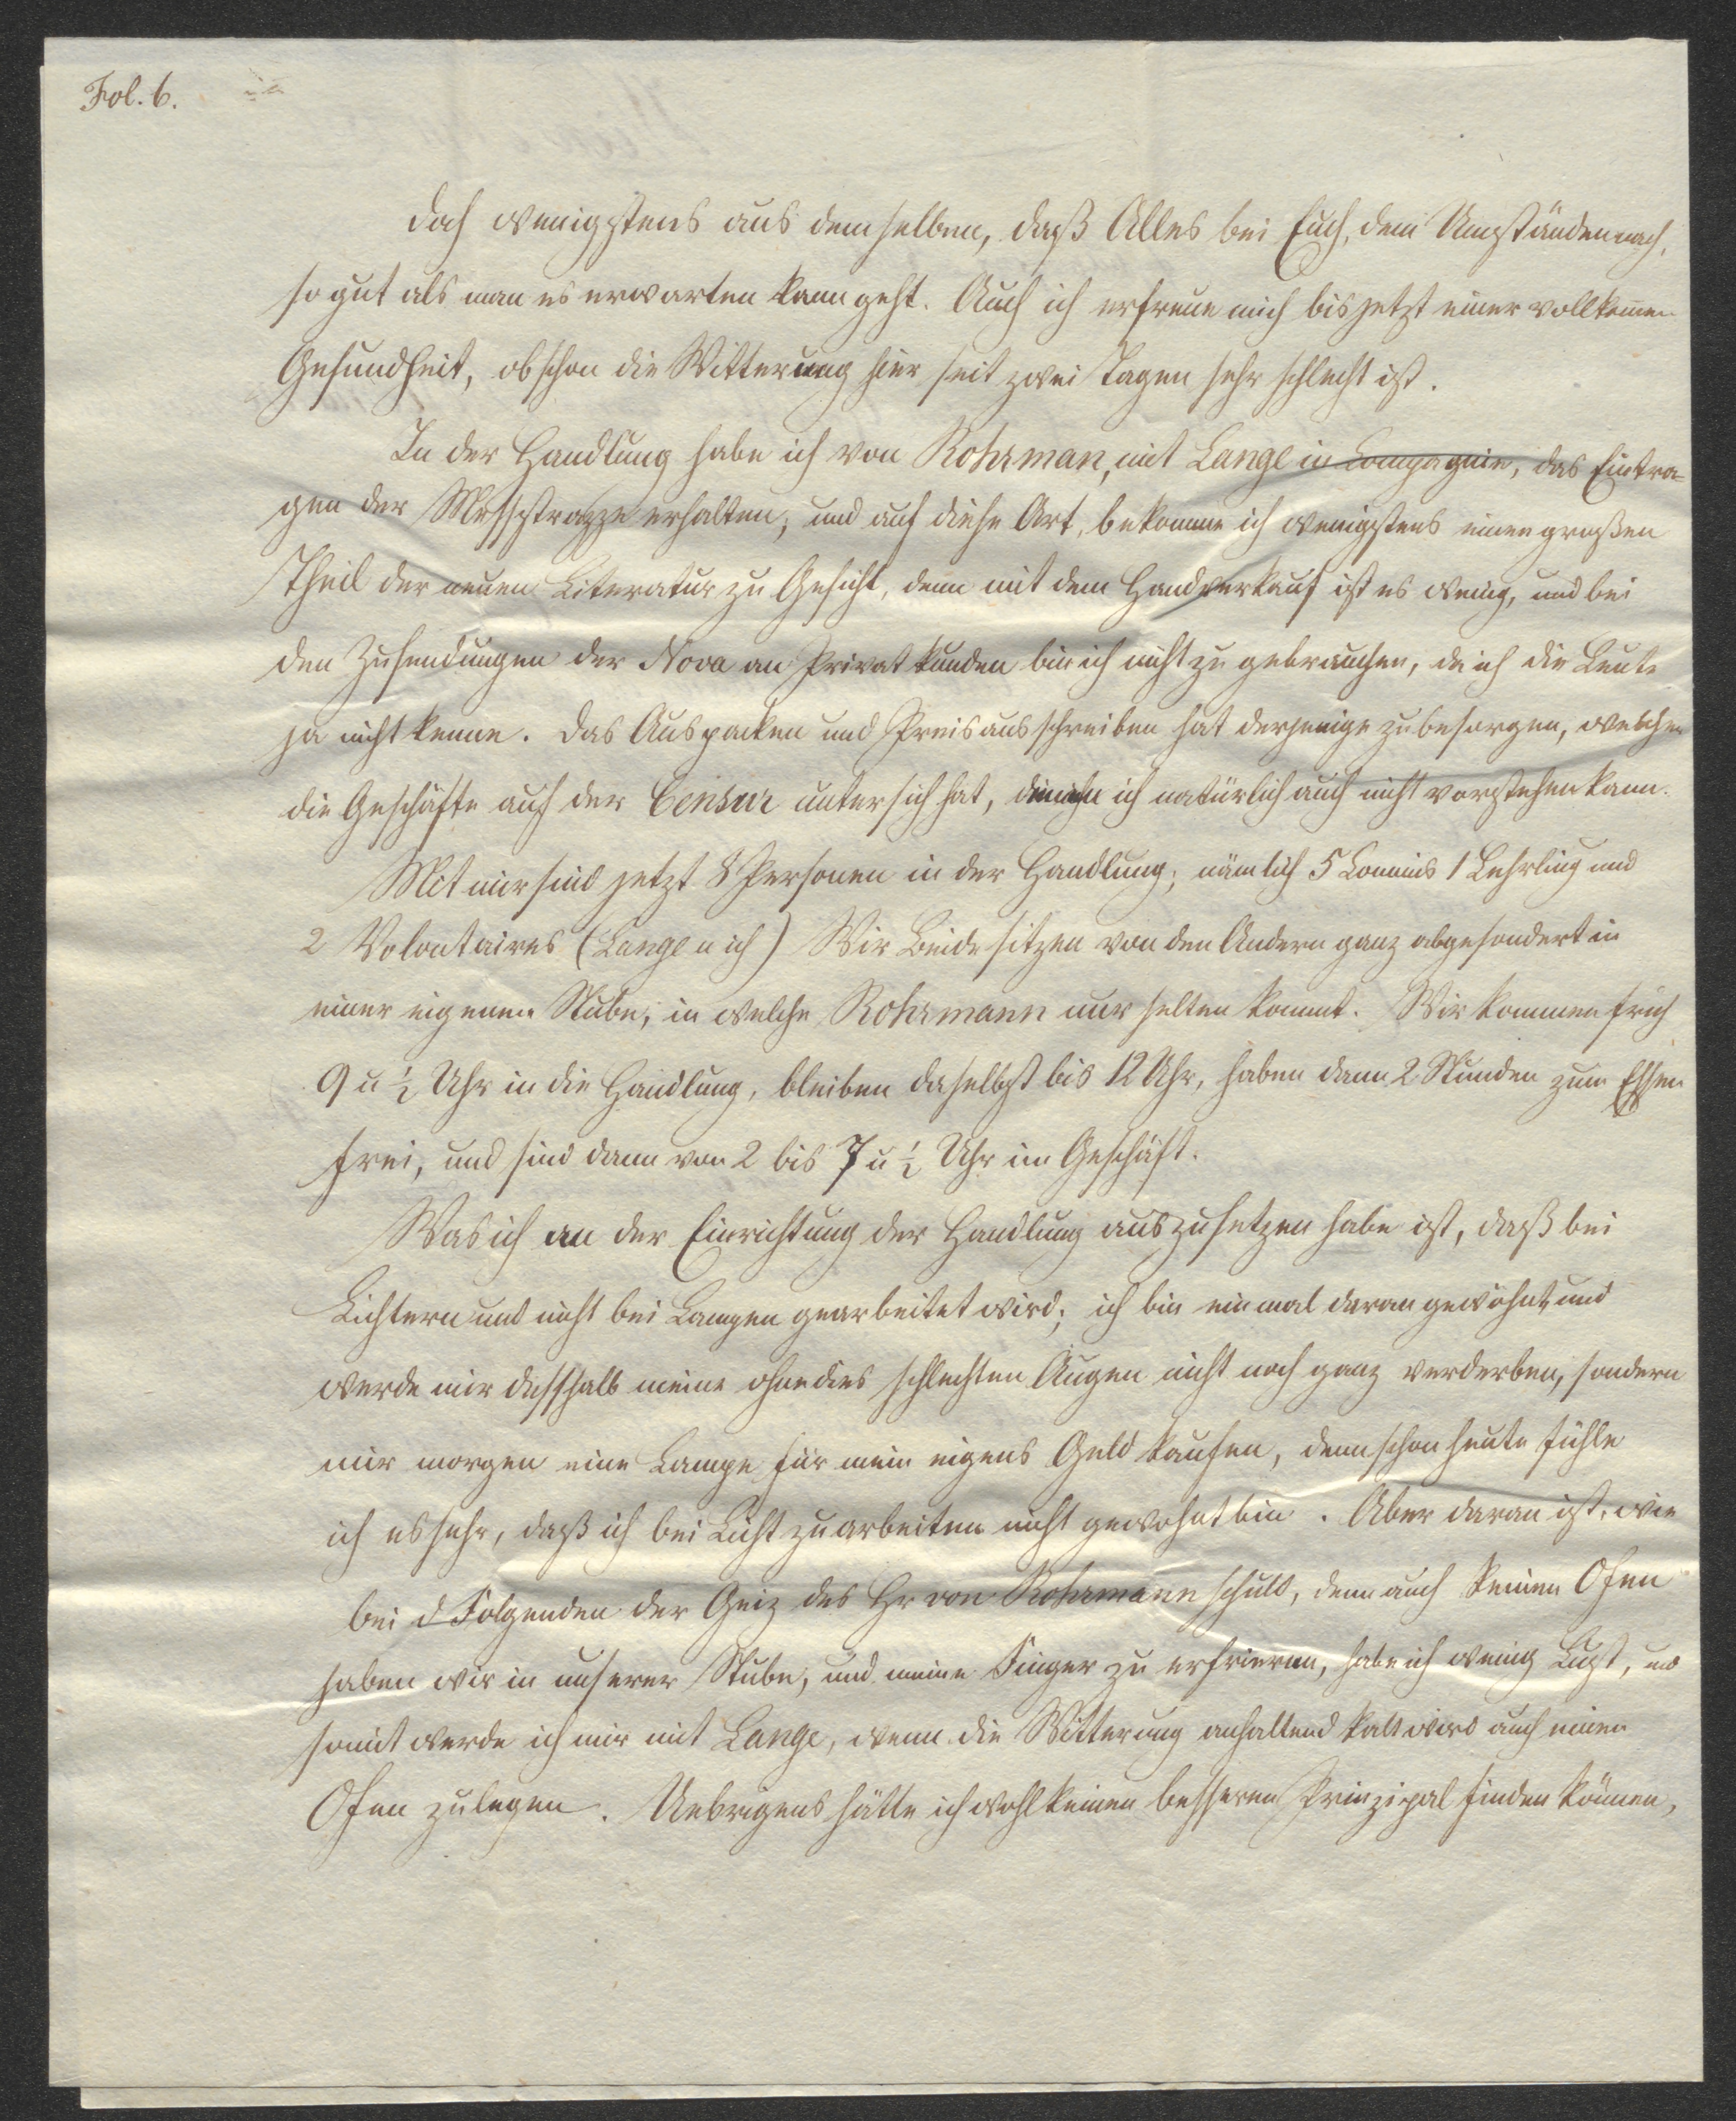 Fol. 6.
doch wenigstens aus demselben, daß Alles bei Euch, den Umständen nach,
so gut als man es erwarten kann geht. Auch ich erfreue mich bis jetzt einer vollkom̅en
Gesundheit, obschon die Witterung hier seit zwei Tagen sehr schlecht ist.
In der Handlung habe ich von Rohrman, mit Lange in Compagnie, das Eintra-
gen der Messstrazze erhalten, und auf diese Art, bekomme ich wenigstens einen großen
Theil der neuen Literatur zu Gesicht, denn mit dem Handverkauf ist es wenig, und bei
den Zusendungen der Nova an Privatkunden bin ich nicht zu gebrauchen, da ich die Leute
ja nicht kenne. Das Auspacken und Preisausschreiben hat derjenige zu besorgen, welcher
die Geschäfte auf der Censur unter sich hat, ich natürlich auch nicht vorstehen kann.
Mit mir sind jetzt 8 Personen in der Handlung, nämlich 5 Commis 1 Lehrling und
2 Volontaires (Lange u ich) Wir Beide sitzen von den Andern ganz abgesondert in
einer eigenen Stube, in welche Rohrmann nur selten kommt. Wir kommen früh
9 u ½ Uhr in die Handlung, bleiben daselbst bis 12 Uhr, haben dann 2 Stunden zum Essen
frei, und sind dann von 2 bis 7 u ½ Uhr im Geschäft.
Was ich an der Einrichtung der Handlung auszusetzen habe ist, daß bei
Lichtern und nicht bei Lampen gearbeitet wird; ich bin einmal daran gewöhnt und
werde mir deßhalb meine ohnedies schlechten Augen nicht noch ganz verderben, sondern
mir morgen eine Lampe für mein eigens Geld kaufen, denn schon heute fühle
ich es sehr, daß ich bei Licht zu arbeiten nicht gewohnt bin. Aber daran ist, wie
bei d Folgenden der Geiz des Hr von Rohrmann schuld, denn auch keinen Ofen
haben wir in unserer Stube, und meine Finger zu erfrieren, habe ich wenig Lust, und
somit werde ich mir mit Lange, wenn die Witterung anhaltend kalt wird auch einen
Ofen zulegen. Uebrigens hätte ich wohl keinen besseren Prinzipal finden können,